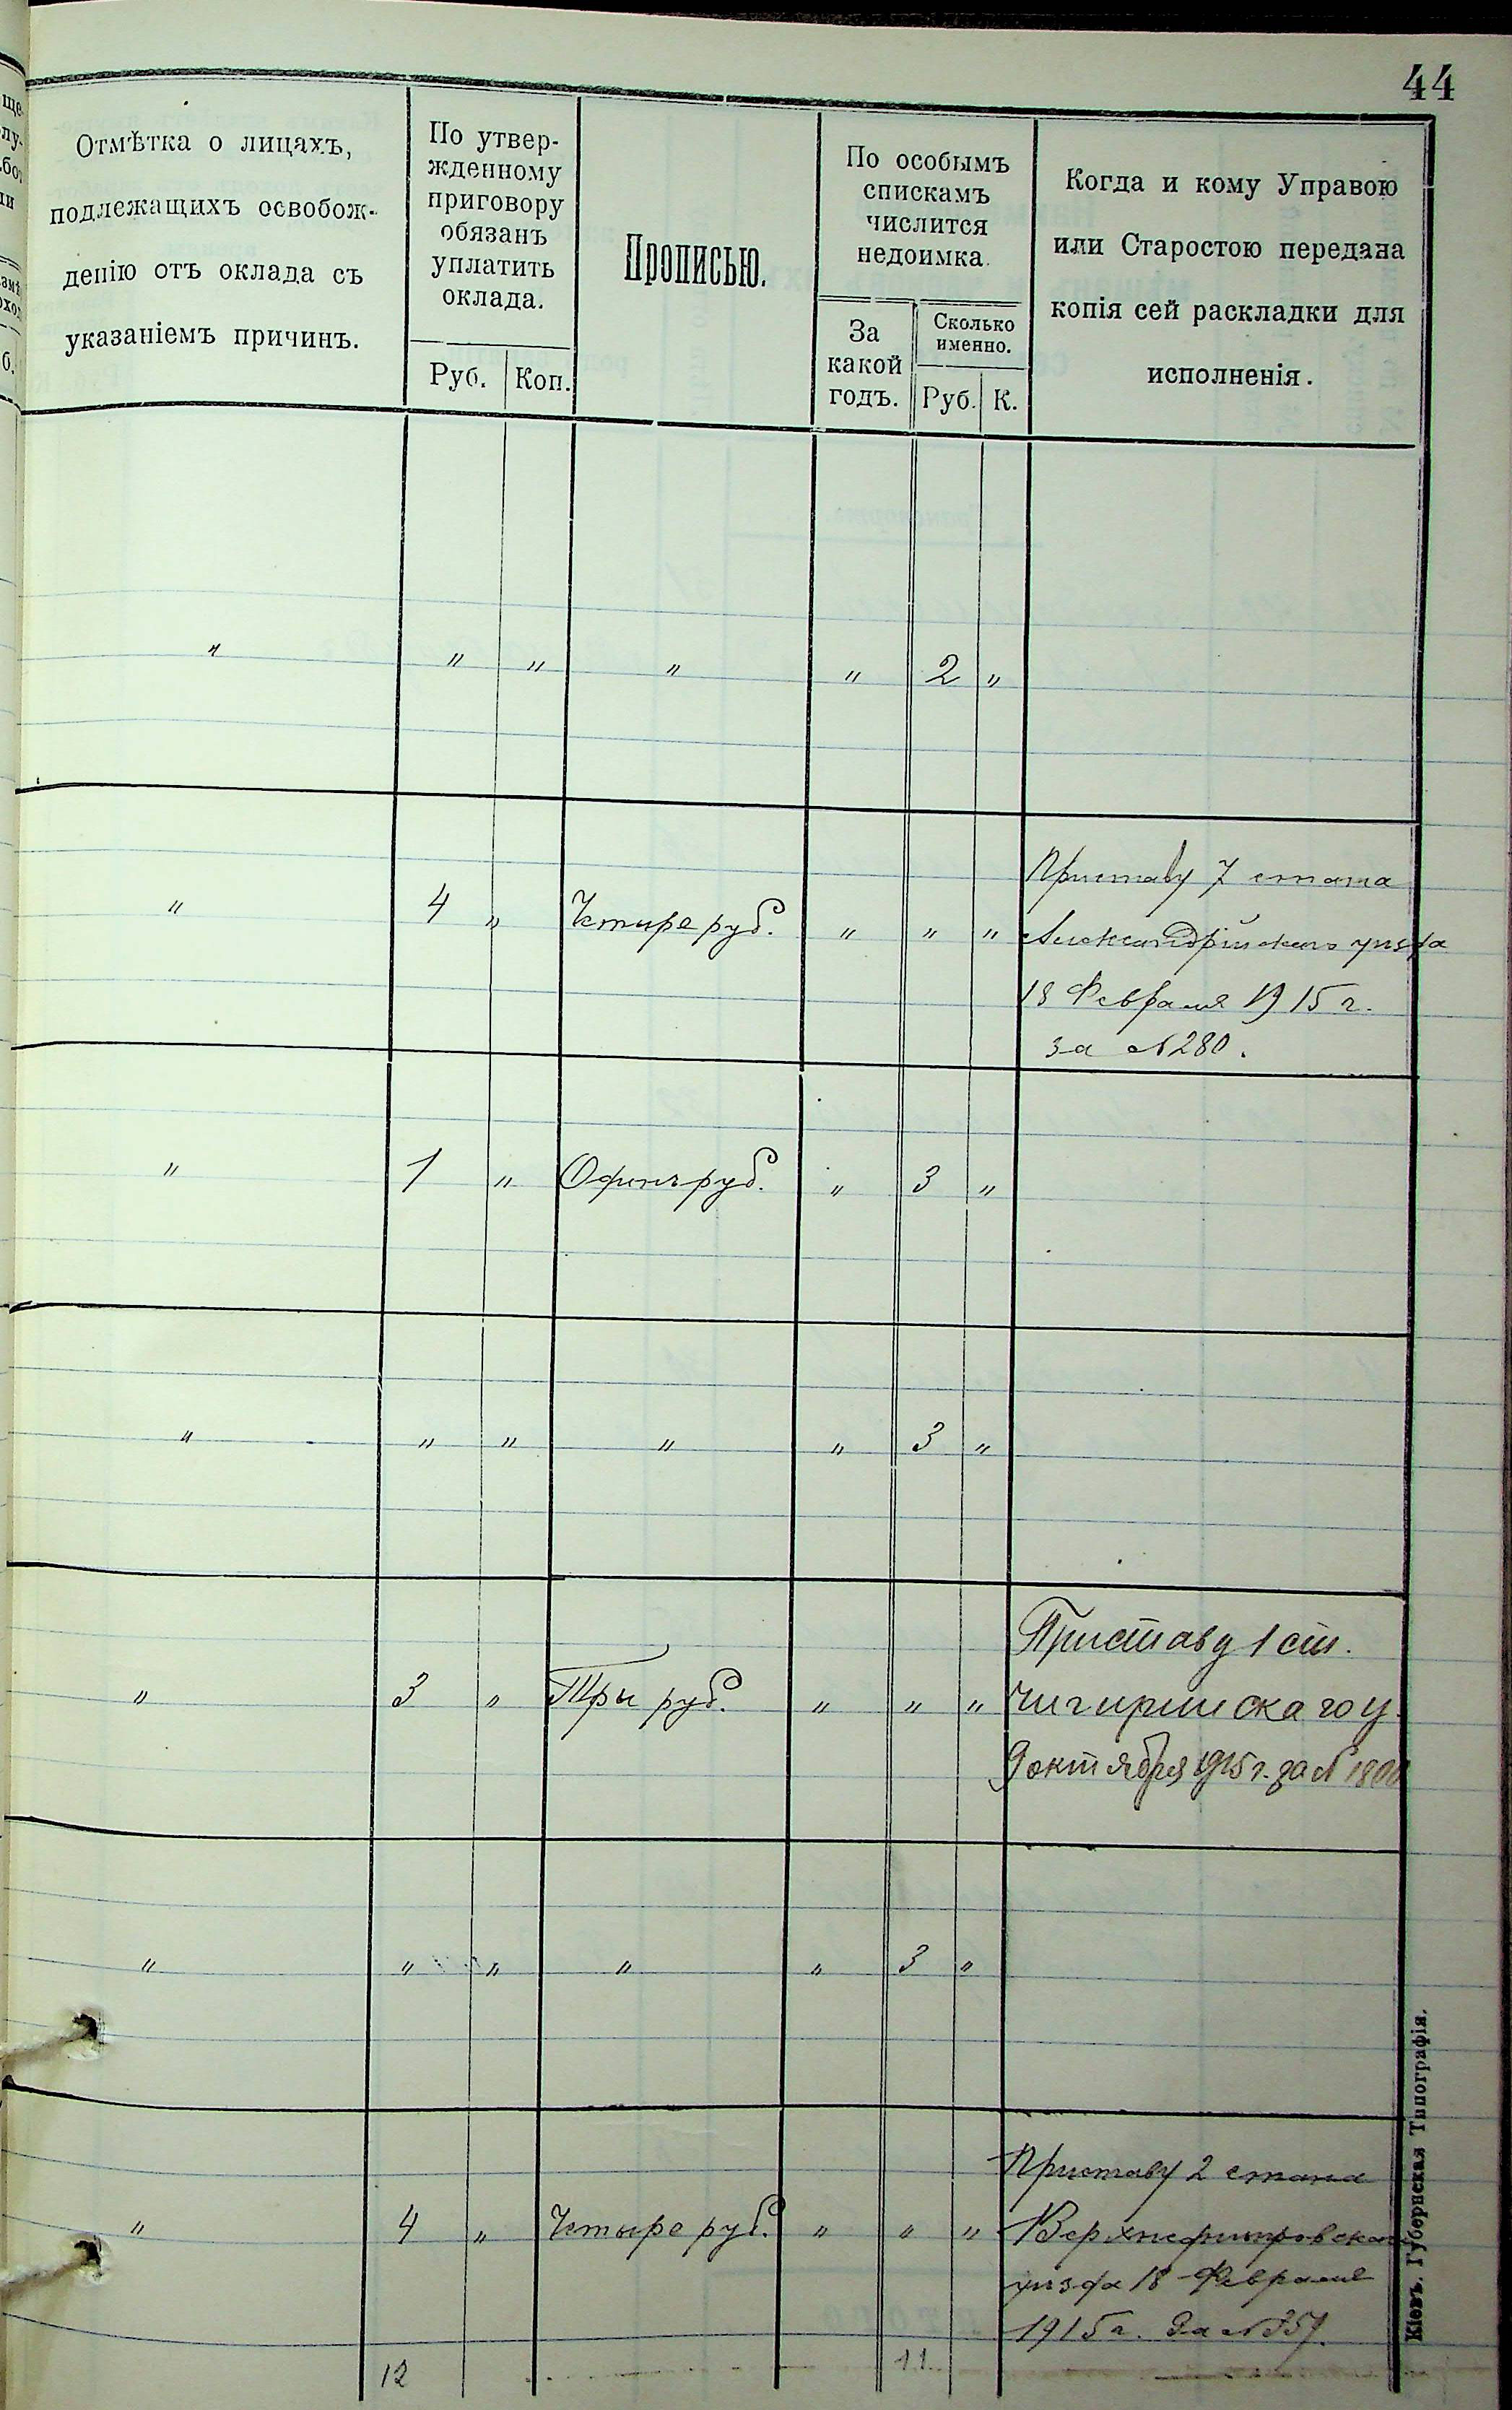 44
Отмѣтка о лицахъ,
подлежащихъ освобож-
денію отъ оклада съ
указаніемъ причинъ.
По утвер-
жденному
приговору
обязанъ
уплатить
оклада.
Руб. Коп.
Прописью.
По особымъ
спискамъ
числится
недоимка.
За
какой
годъ.
Сколько
именно.
Руб. К.
Когда и кому Управою
или Старостою передана
копія сей раскладки для
исполненія.
" " " " " 2 "
" 4 " Четыре руб. " " "
Приставу 7 стана
Александрійскаго уѣзда
18 Февраля 1915 г.
за №280.
" 1 " Одинъ руб. " 3 "
" " " " " 3 "
" 3 " Три руб. " " "
Приставу 1 ст.
Чигиринскаго у.
9 октября 1915 г. за №
" " " " " 3 "
" 4 " Четыре руб. " " "
Приставу 2 стана
Верхнеднипровскаго
уѣзда 18 Февраля
1915 г. За №
12 11
Кіевъ. Губернская Типографія.